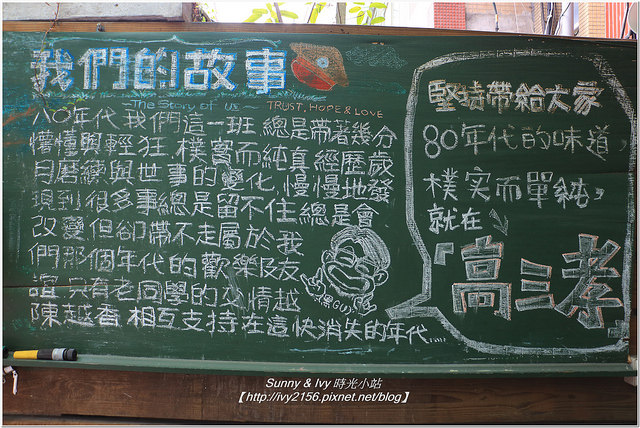 我們的故事
The Story of us ~ TRUST, HOPE & LOVE
八〇年代,我們這一班,總是帶著幾分
懵懂與輕狂,樸實而純真,經歷歲
月磨鍊與世事的變化,慢慢地發
現到很多事總是留不住總是會
改變但卻帶不走屬於我
們那個年代的歡樂及友
誼,只有老同學的友情越
陳越香,相互支持在這快消失的年代
黑GUY
堅持帶給大家
80年代的味道,
樸实而單純,
就在
「高三孝
Sunny & Ivy 時光小站
【http://ivy2156.pixnet.net/blog】